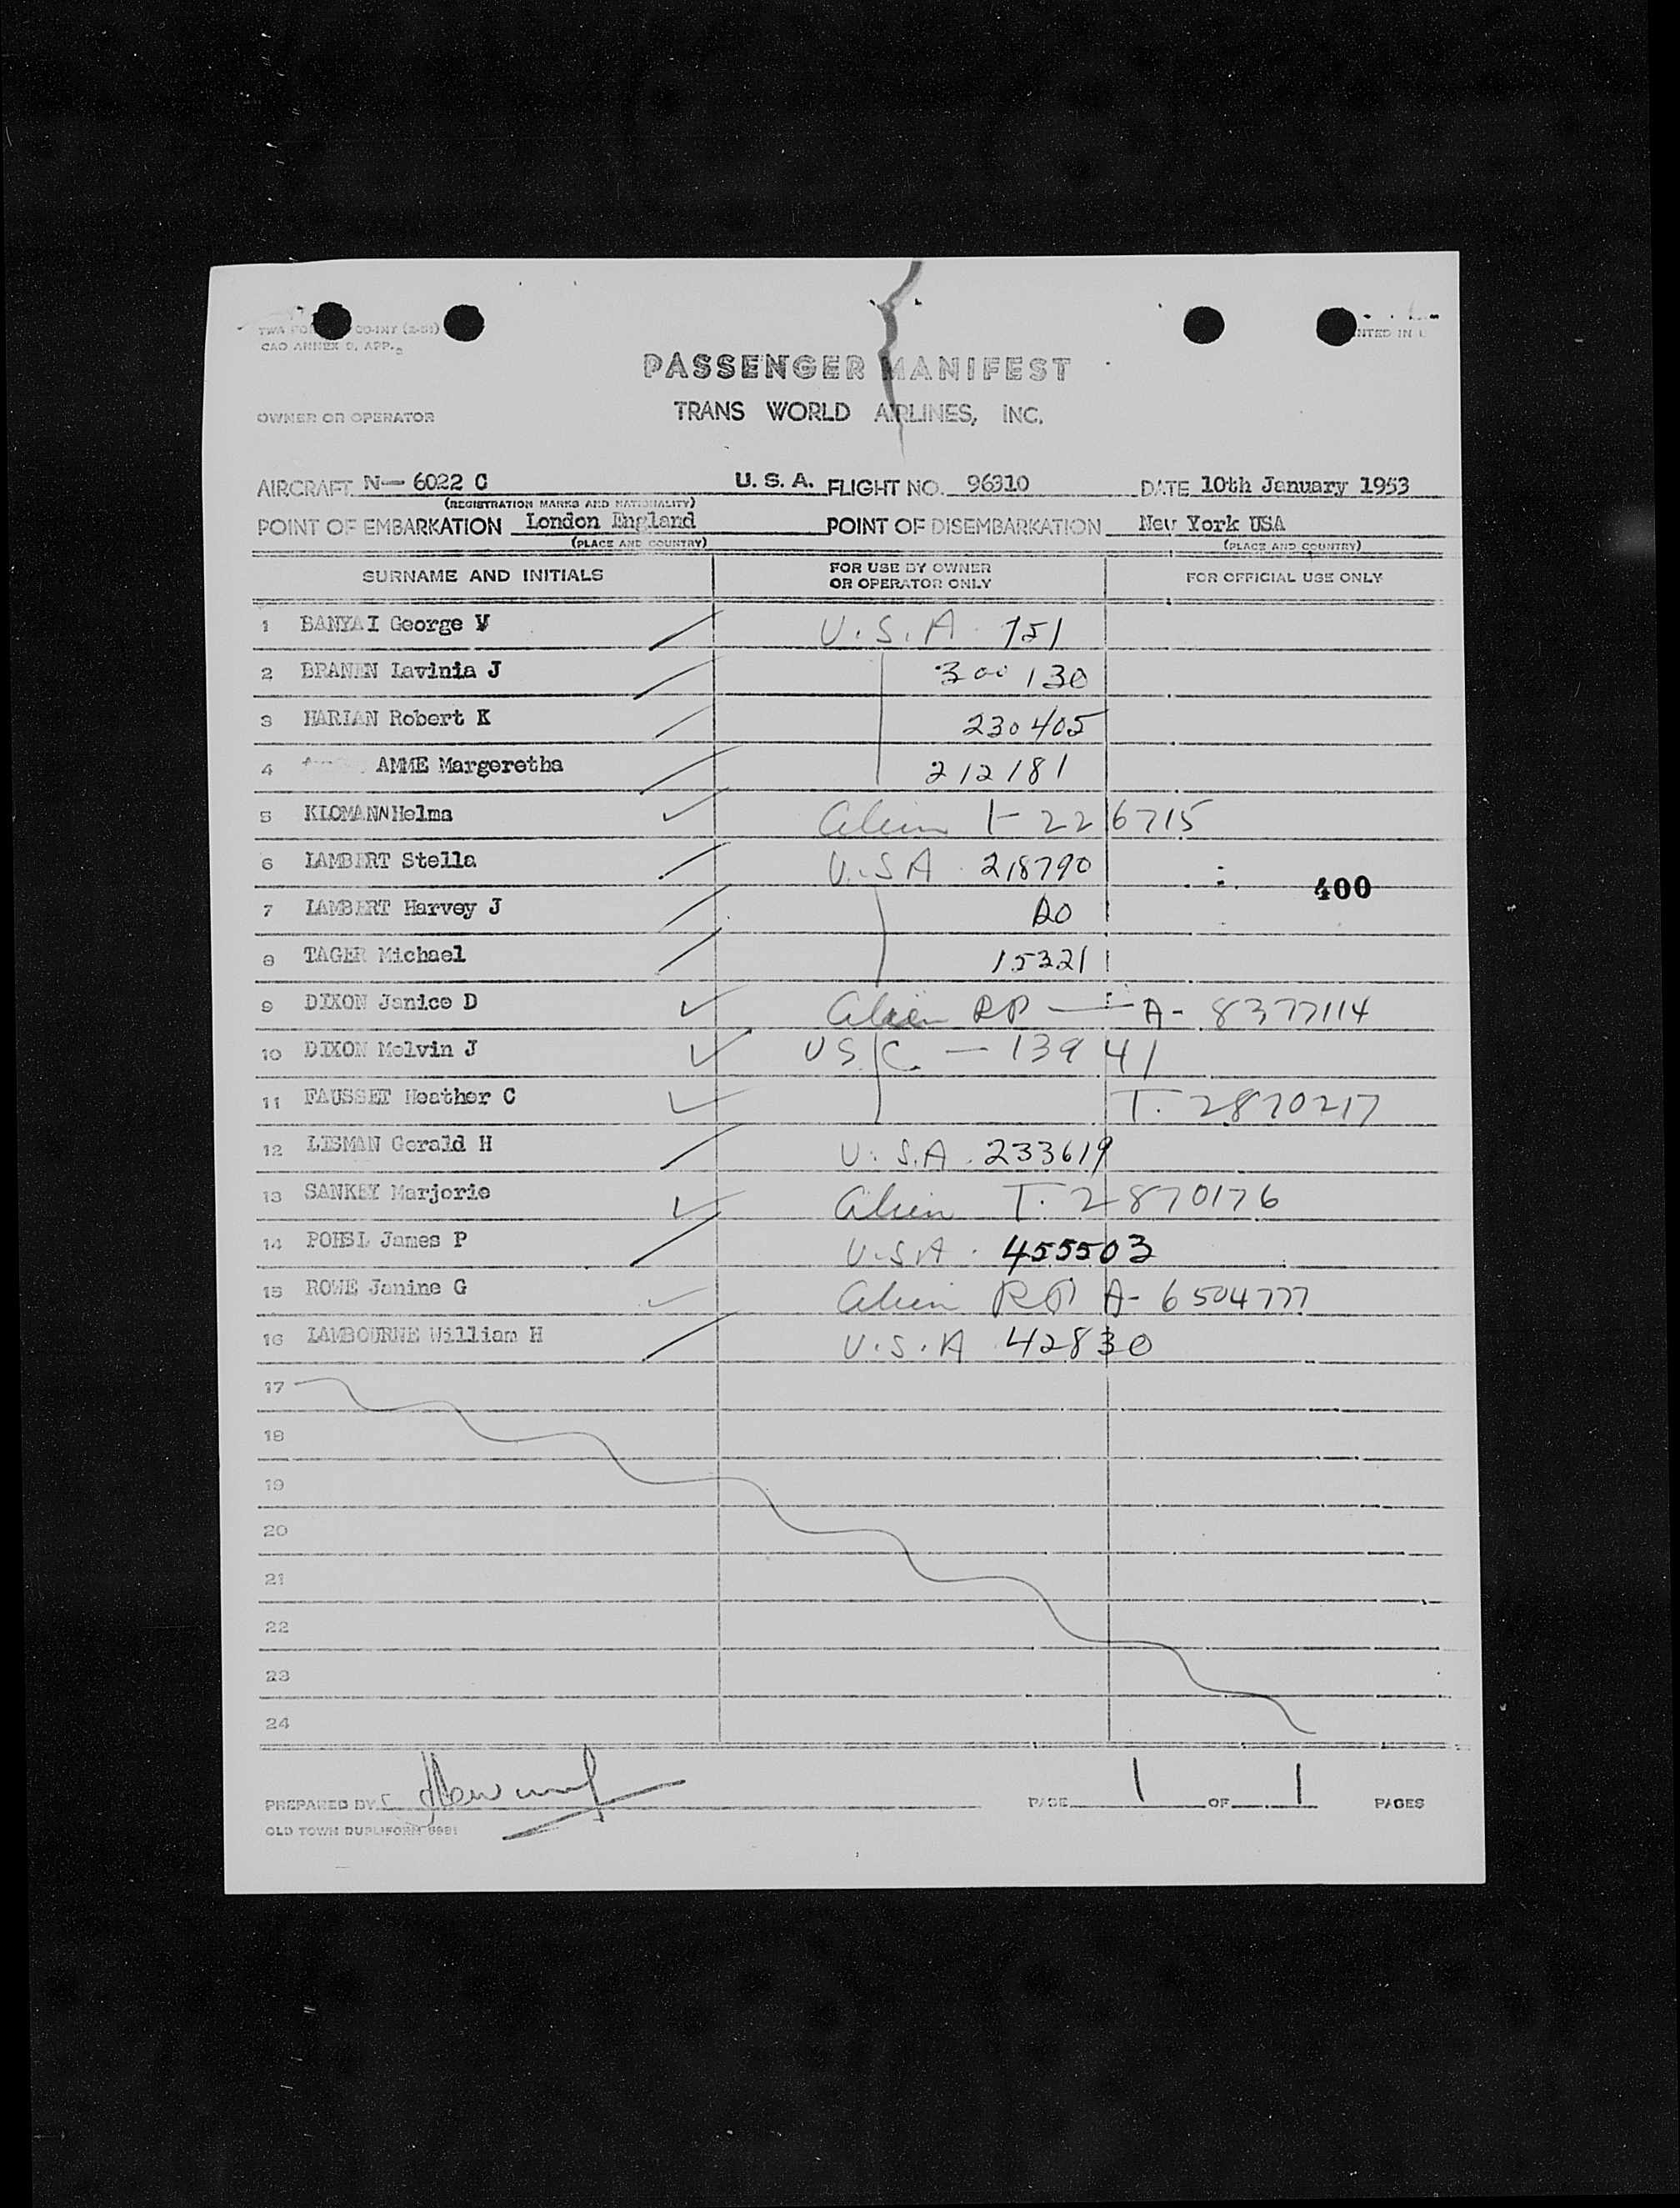 CAO ANNEX 9, APP.
PASSENGER MANIFEST
OWNER OR OPERATOR
TRANS WORLD AIRLINES, INC.
AIRCRAFT N- 6022 C U. S. A. FLIGHT NO. 96310 DATE 10th January 1953
(REGISTRATION MARKS AND NATIONALITY)
POINT OF EMBARKATION London England POINT OF DISEMBARKATION New York USA
(PLACE AND COUNTRY) (PLACE AND COUNTRY)
SURNAME AND INITIALS FOR USE BY OWNER OR OPERATOR ONLY FOR OFFICIAL USE ONLY
1 BANYAI George V U.S.A. 751
2 BRANEN Lavinia J 300130
3 HARIAN Robert K 230405
4 AMME Margeretha 212181
5 KLOMANN Helma Alien 1-226715
6 LAMBERT Stella U.S.A 218790
400
7 LAMBERT Harvey J DO
8 TAGER Michael 153221
9 DIXON Janice D Alien RP — A- 8377114
10 DIXON Melvin J USC — 13941
11 FAUSSET Heather C T. 2870217
12 LISMAN Gerald H U.S.A. 233619
13 SANKEY Marjorie Alien T. 2870176
14 POHSL James P U.S.A. 455503
15 ROWE Janine G Alien RP A- 6504777
16 LAMBOURNE William H U.S.A 42830
17
18
19
20
21
22
23
24
PREPARED BY PAGE 1 OF 1 PAGES
OLD TOWN DUPLIFORM